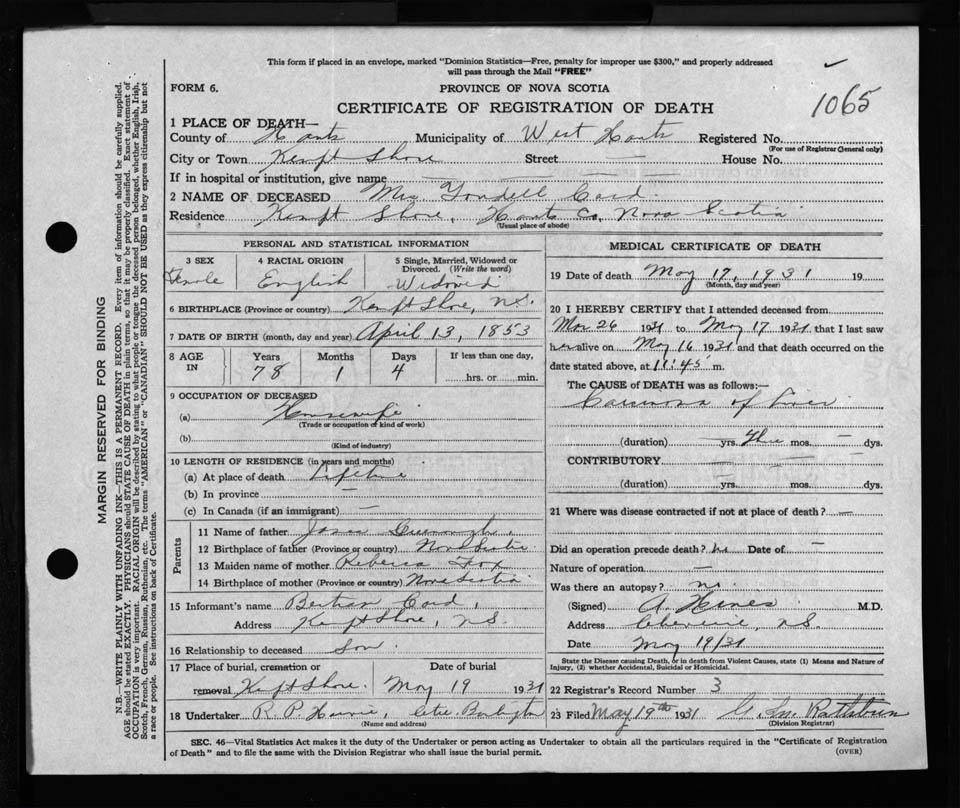 This form if placed in an envelope, marked "Dominion Statistics—Free, penalty for improper use $300," and properly addressed
will pass through the Mail "FREE"
FORM 6.
PROVINCE OF NOVA SCOTIA
1065
CERTIFICATE OF REGISTRATION OF DEATH
1 PLACE OF DEATH—
County of Hants Municipality of West Hants Registered No.
(For use of Registrar General only)
City or Town Kempt Shore Street — House No.
If in hospital or institution, give name — — — —
2 NAME OF DECEASED Mrs. Yondell Card
Residence Kempt Shore, Hants Co, Nova Scotia
(Usual place of abode)
PERSONAL AND STATISTICAL INFORMATION
3 SEX 4 RACIAL ORIGIN 5 Single, Married, Widowed or Divorced. (Write the word)
Female English Widowed
6 BIRTHPLACE (Province or country) Kempt Shore, N.S.
7 DATE OF BIRTH (month, day and year) April 13, 1853
8 AGE IN Years Months Days If less than one day,
78 1 4 hrs. or min.
9 OCCUPATION OF DECEASED
(a) Housewife
(Trade or occupation or kind of work)
(b)
(Kind of industry)
10 LENGTH OF RESIDENCE (in years and months)
(a) At place of death Lifetime
(b) In province —
(c) In Canada (if an immigrant) —
Parents
11 Name of father
12 Birthplace of father (Province or country) Nova Scotia
13 Maiden name of mother Rebecca Fox
14 Birthplace of mother (Province or country) Nova Scotia
15 Informant's name Bertran Card,
Address Kempt Shore, N.S.
16 Relationship to deceased Son
17 Place of burial, cremation or Date of burial
removal Kempt Shore. May 19 1931
18 Undertaker R. P. Harvie,
(Name and address)
MEDICAL CERTIFICATE OF DEATH
19 Date of death May 17, 1931 19
(Month, day and year)
20 I HEREBY CERTIFY that I attended deceased from
Mar 26 1931 to May 17 1931 that I last saw
her alive on May 16 1931 and that death occurred on the
date stated above, at 11:45 m.
The CAUSE of DEATH was as follows:—
Carcinoma of Liver
(duration) yrs. Three mos. — dys.
CONTRIBUTORY — —
(duration) — yrs. — mos. — dys.
21 Where was disease contracted if not at place of death? —
Did an operation precede death? no Date of —
Nature of operation —
Was there an autopsy? no.
(Signed) A. Hines M.D.
Address Cheverie, N.S.
Date May 19/31
State the Disease causing Death, or in death from Violent Causes, state (1) Means and Nature of
Injury, (2) whether Accidental, Suicidal or Homicidal.
22 Registrar's Record Number 3
23 Filed May 19th 1931 G. M. Rathburn
(Division Registrar)
SEC. 46—Vital Statistics Act makes it the duty of the Undertaker or person acting as Undertaker to obtain all the particulars required in the "Certificate of Registration
of Death" and to file the same with the Division Registrar who shall issue the burial permit.
(OVER)
MARGIN RESERVED FOR BINDING
N.B.—WRITE PLAINLY WITH UNFADING INK—THIS IS A PERMANENT RECORD. Every item of information should be carefully supplied.
AGE should be stated EXACTLY. PHYSICIANS should STATE CAUSE OF DEATH in plain terms, so that it may be properly classified. Exact statement of
OCCUPATION is very important. RACIAL ORIGIN will be described by stating to what people or tongue the deceased person belonged, whether English, Irish,
Scotch, French, German, Russian, Ruthenian, etc. The terms "AMERICAN" or "CANADIAN" SHOULD NOT BE USED as they express citizenship but not
a race or people. See instructions on back of Certificate.